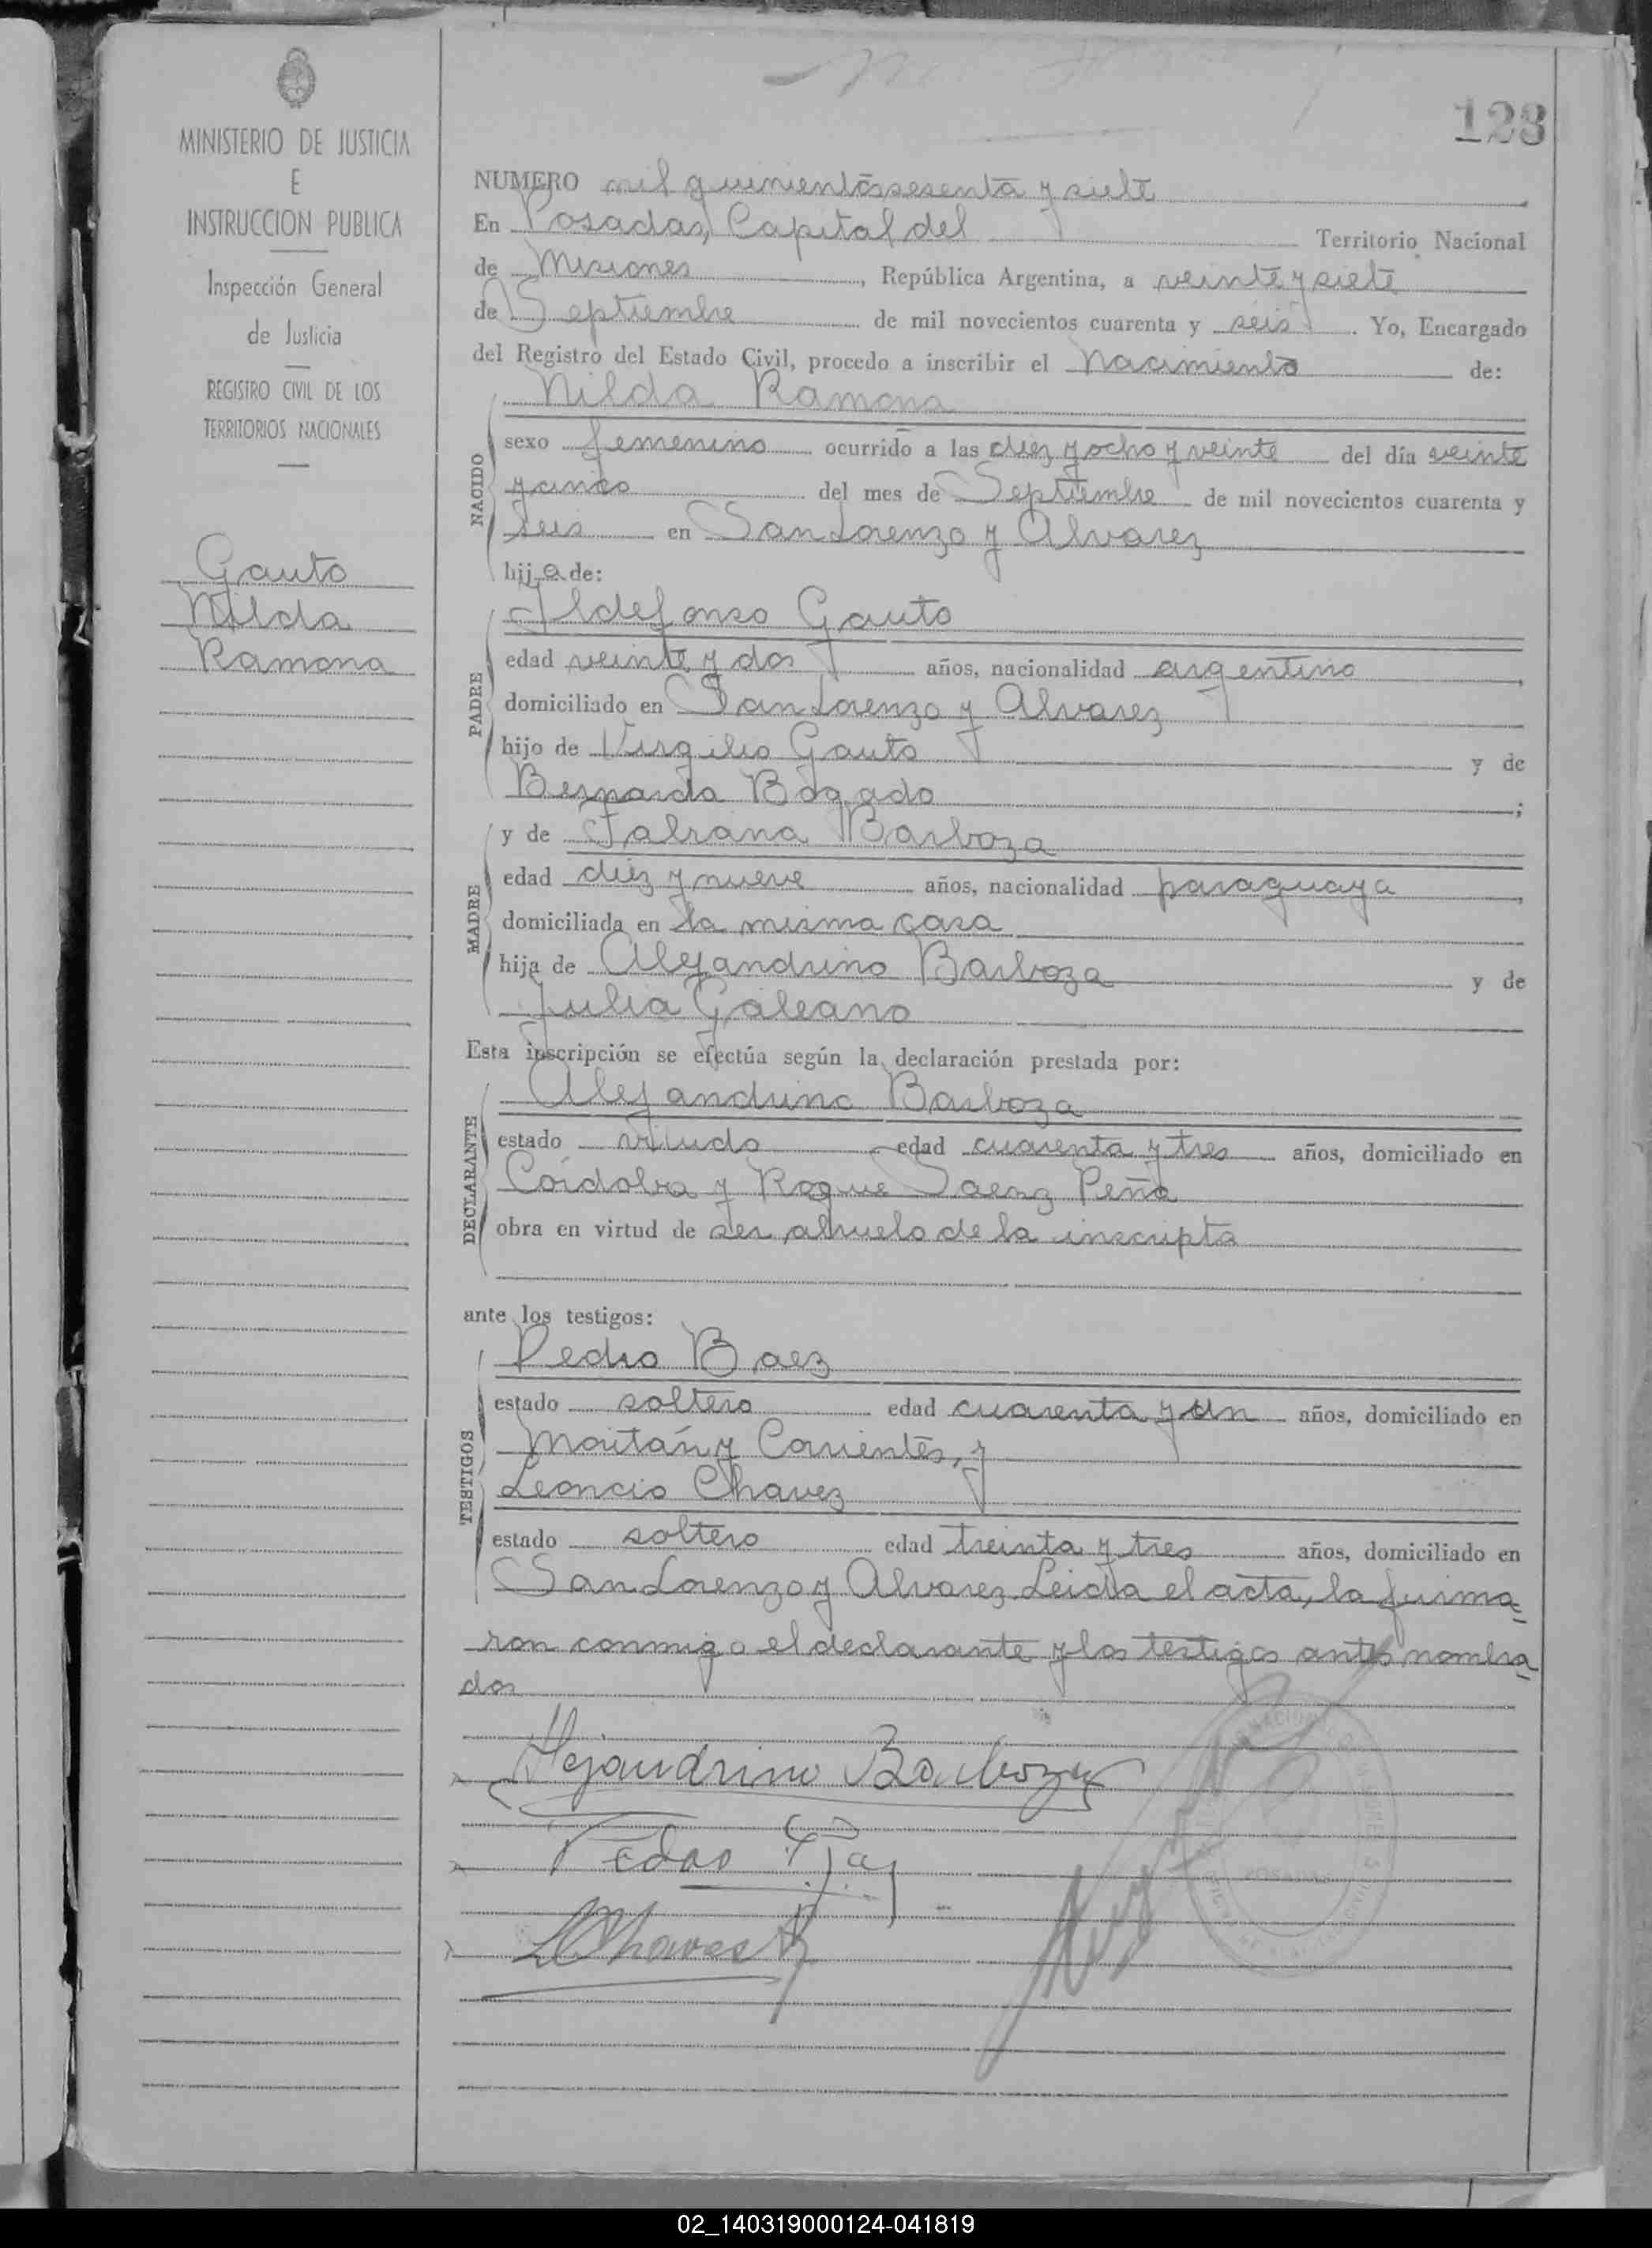 123
MINISTERIO DE JUSTICIA
E
INSTRUCCION PUBLICA
Inspección General
de Justicia
REGISTRO CIVIL DE LOS
TERRITORIOS NACIONALES
Gauto
Nilda
Ramona
NUMERO mil quinientos sesenta y siete
En Posadas, Capital del Territorio Nacional
de Misiones, República Argentina, a veinte y siete
de Septiembre de mil novecientos cuarenta y seis. Yo, Encargado
del Registro del Estado Civil, procedo a inscribir el nacimiento de:
Nilda Ramona
NACIDO
sexo femenino ocurrido a las diez y ocho y veinte del día veinte
y cinco del mes de Septiembre de mil novecientos cuarenta y
seis en San Lorenzo y Alvarez
hija de:
Ildefonso Gauto
PADRE
edad veinte y dos años, nacionalidad argentino,
domiciliado en San Lorenzo y Alvarez
hijo de Virgilio Gauto y de
Bernarda Bogado;
y de Fabiana Barboza
MADRE
edad diez y nueve años, nacionalidad paraguaya,
domiciliada en la misma casa
hija de Alejandrino Barboza y de
Julia Galeano
Esta inscripción se efectúa según la declaración prestada por:
Alejandrino Barboza
DECLARANTE
estado viudo edad cuarenta y tres años, domiciliado en
Córdoba y Roque Saenz Peña
obra en virtud de ser abuelo de la inscripta
ante los testigos:
Pedro Baez
TESTIGOS
estado soltero edad cuarenta y un años, domiciliado en
Moitán y Corrientes, y
Leoncio Chavez
estado soltero edad treinta y tres años, domiciliado en
San Lorenzo y Alvarez. Leida el acta, la firma=
ron conmigo el declarante y los testigos antes nombra=
dos
Alejandrino Barboza
Pedro
LChavez
POSADAS
02_140319000124-041819